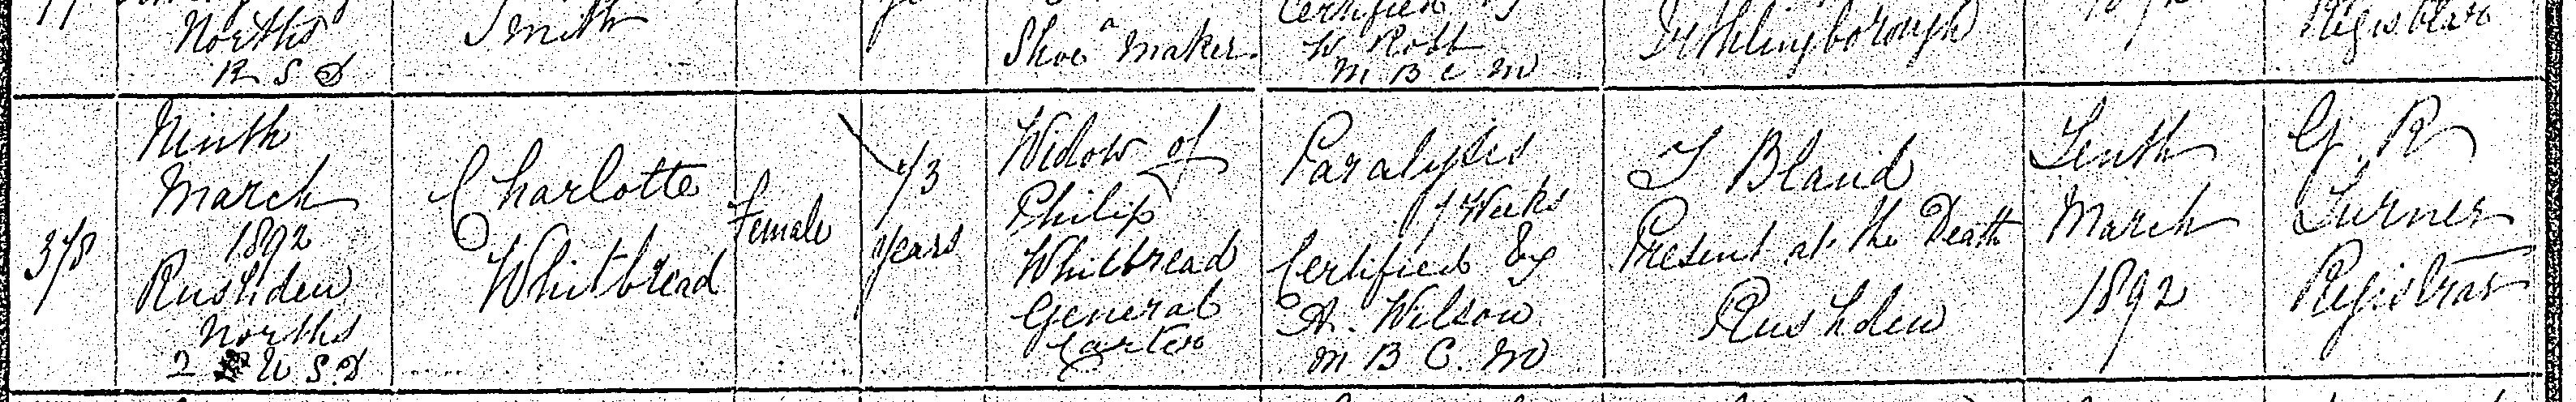 Norths
R S D
Smith
Shoe maker
Certified by
W Robb
M B C M
Irthlingborough
Registrar
378
Ninth
March
1892
Rushden
Norths
U S. D
Charlotte
Whitbread
Female
73
years
Widow of
Philip
Whitbread
General
Carter
Paralysis
Weeks
Certified by
A. Wilson
M B C. M
T Bland
Present at the Death
Rushden
Tenth
March
1892
G. R
Turner
Registrar